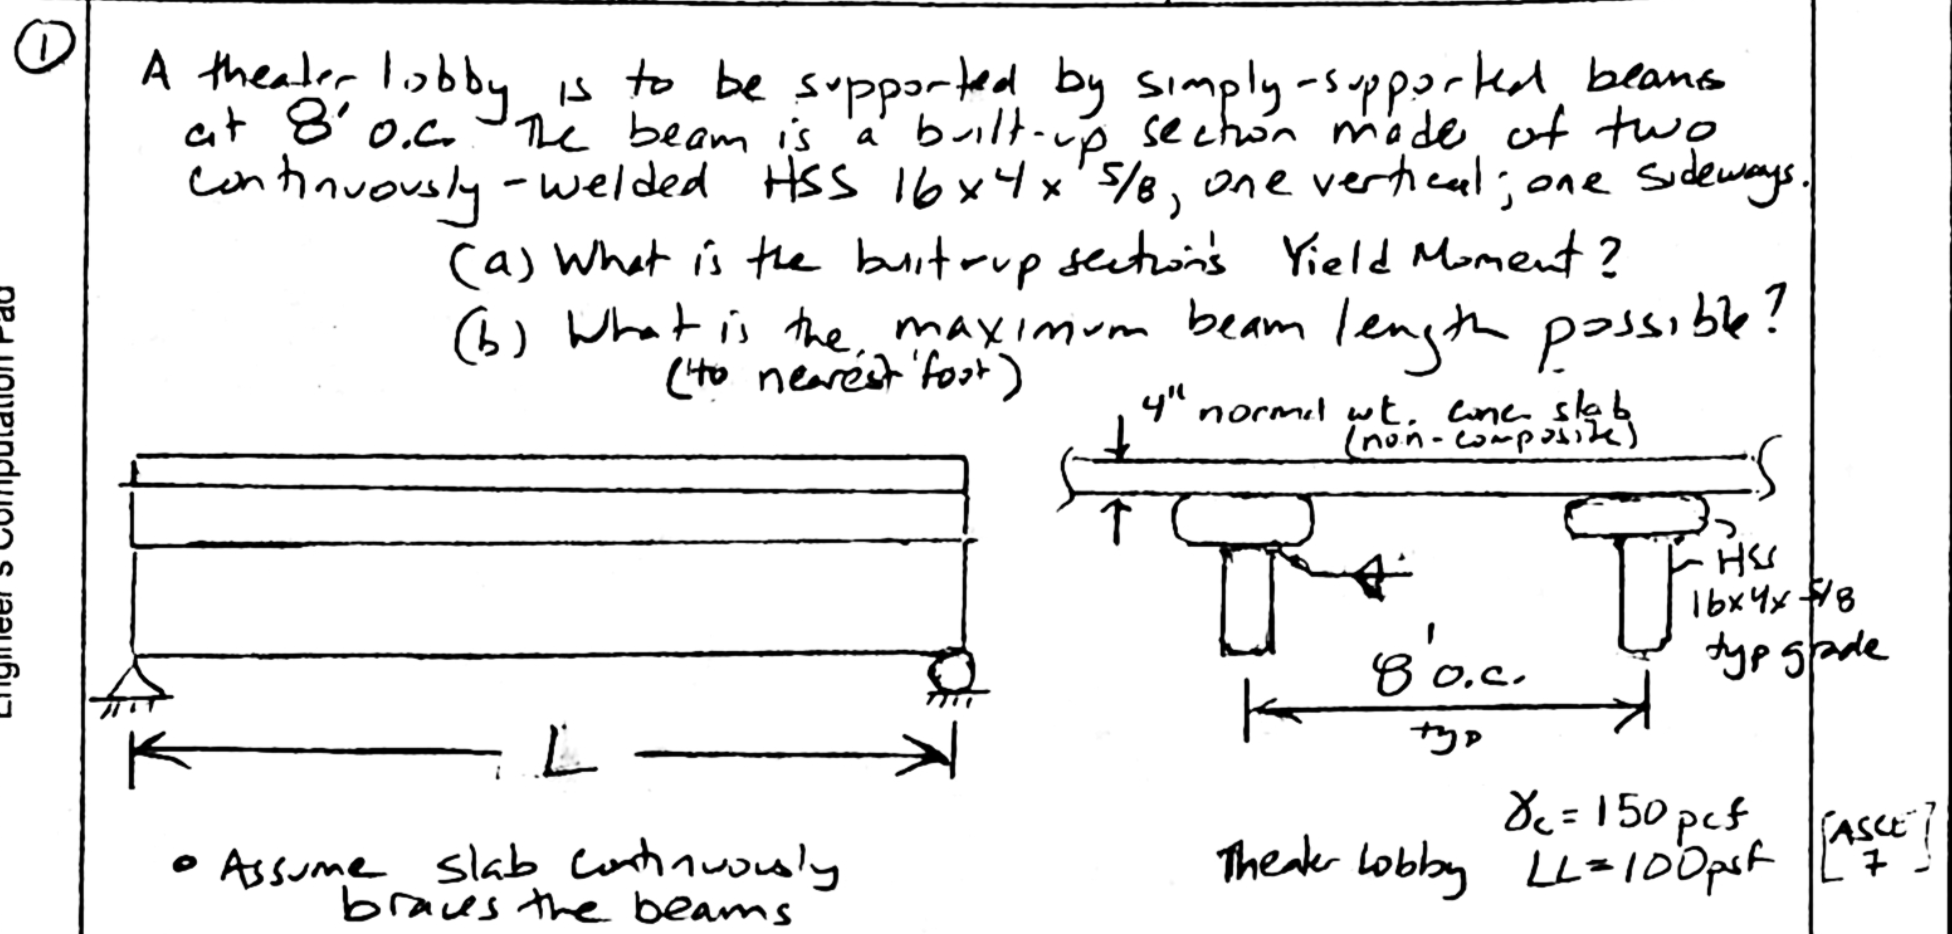 1
A theater lobby is to be supported by simply-supported beams
at 8' o.c. The beam is a built-up section made of two
continuously-welded HSS 16x4x5/8, one vertical; one sideways.
(a) What is the built-up section's Yield Moment?
(b) What is the maximum beam length possible?
(to nearest foot)
Engineer's Computation Pad
4" normal wt. conc slab
(non-composite)
HSS
16x4x5/8
typ grade
8' o.c.
typ
L
γc = 150 pcf
Theater Lobby LL = 100psf
[ASCE 7]
• Assume slab continuously
braces the beams